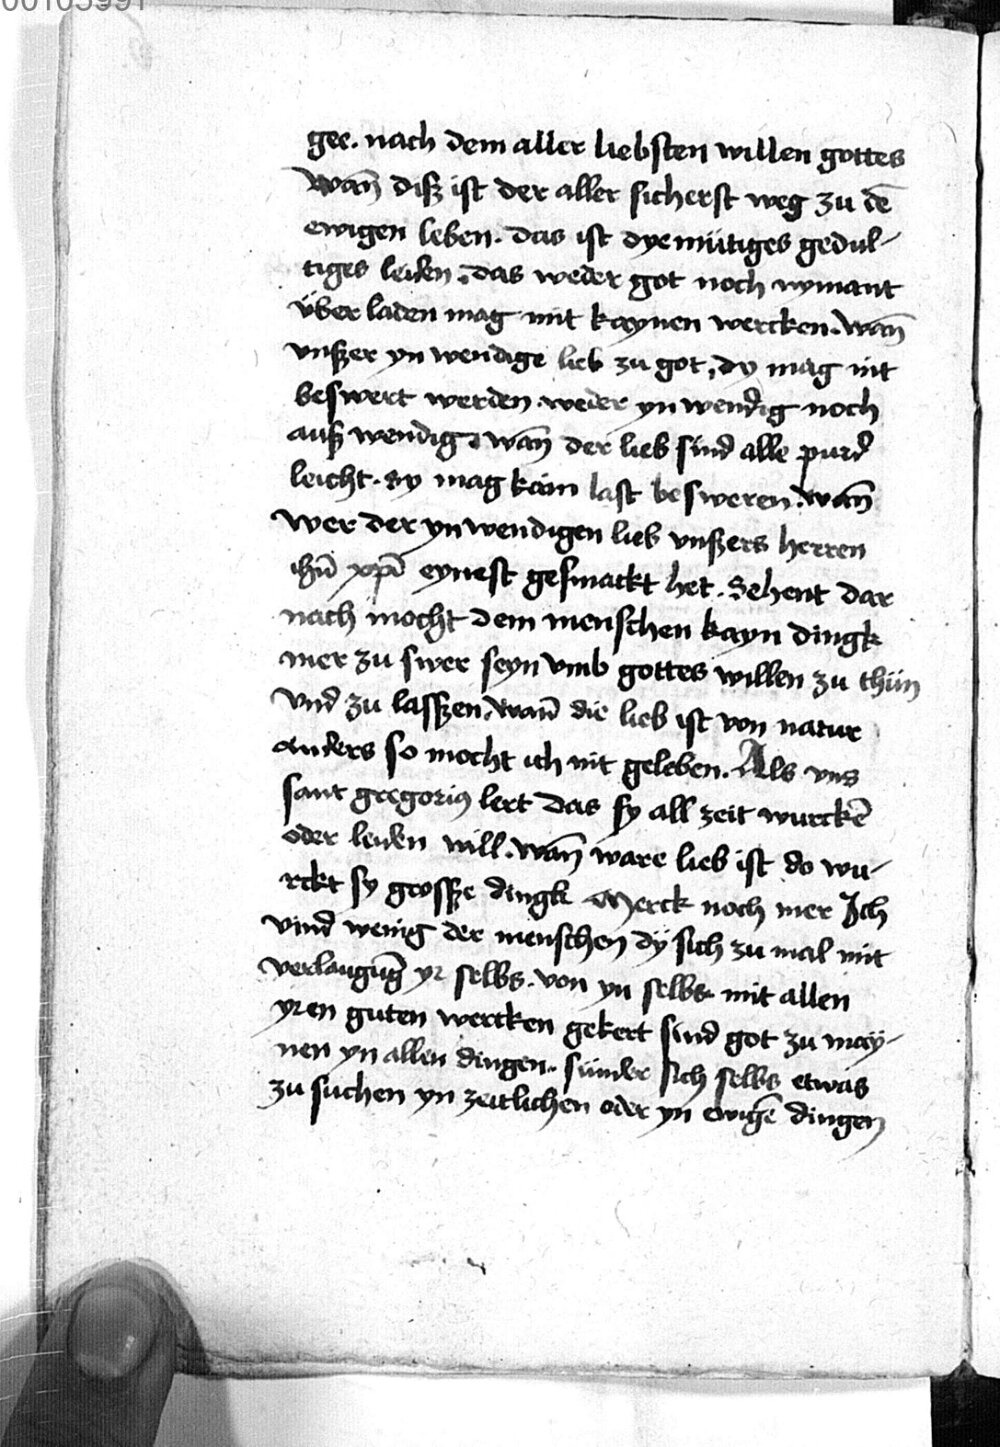 00105991
gee. nach dem aller liebsten willen gottes
Wan̄ diß ist der aller sicherst weg zu dē
ewigen leben. das ist dyemütiges gedul-
tiges leiden. das weder got noch nymant
über laden mag mit kaynen wercken. wan̄
vnßer ynwendige lieb zu got, dy mag nit
beswert werden. weder yn wendig noch
auß wendig. wan̄ der lieb sind alle purd
leicht. sy mag kain last besweren. wan̄
wer der ynwendigen lieb vnßers herren
ihū xp̄i eynest gesmackt het. Sehent dar
nach mocht dem menschen kayn dingk
mer zu swer seyn vmb gottes willen zu thün
vnd zu lasßen. wan̄ die lieb ist von natur
anders so mocht ich nit geleben. Als vns
sant gregorius lert das sy all zeit wurckē
oder leiden will. wan̄ ware lieb ist do wu-
rckt sy grosße dingk Merck noch mer Ich
vind wenig der menschen dÿ sich zu mal mit
verlaugūg yr selbs. von yn selbs. mit allen
yren guten wercken gekert sind got zu may-
nen yn allen dingen. sünder sich selbs etwas
zu suchen yn zeitlichen oder yn ewigē dingen